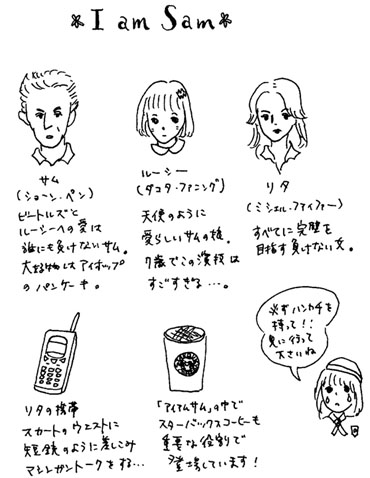 *I am Sam*
サム
(ショーン・ペン)
ビートルズと
ルーシーへの愛は
誰にも負けないサム。
大好物はアイホップ
のパンケーキ。
ルーシー
(ダコタ・ファニング)
天使のように
愛らしいサムの娘。
7歳でこの演技は
すごすぎる…。
リタ
(ミシェル・ファイファー)
すべてに完璧を
目指す負けない女。
リタの携帯
スカートのウエストに
短銃のように差しこみ
マシンガントークをする…
STARBUCKS
「アイアムサム」の中で
スターバックスコーヒーも
重要な役割で
登場しています!
必ずハンカチを
持って!!
見に行って
下さいね